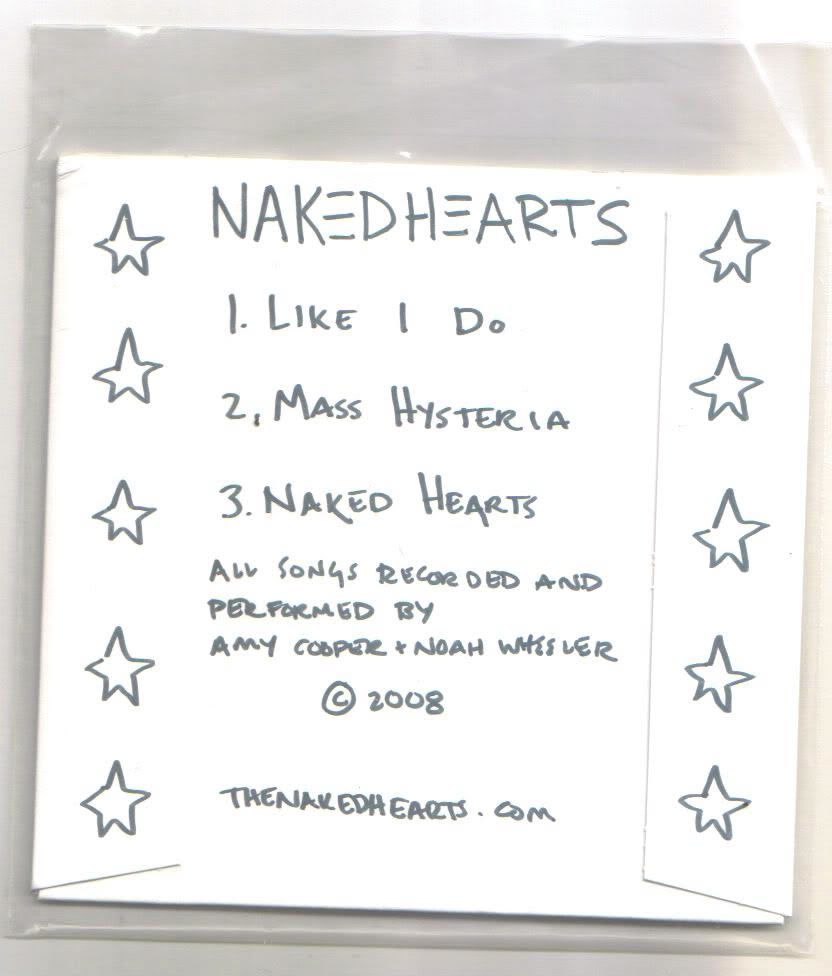 NAKEDHEARTS
1. LIKE I DO
2. MASS HYSTERIA
3. NAKED HEARTS
ALL SONGS RECORDED AND
PERFORMED BY
AMY COOPER + NOAH WHEELER
© 2008
THENAKEDHEARTS.COM